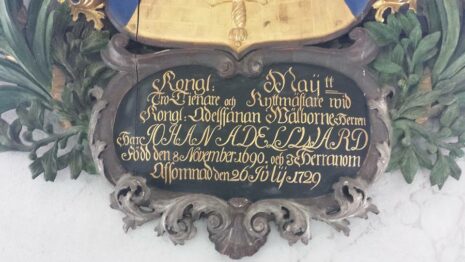 Kongl. Maÿ tt
Tro-Tienare och Ryttmästare wid
Kongl. Adelsfanan Wälborne Herren
Herr JOHAN ADELSWÄRD
Född den 8 November 1690, och I Herranom
Afsomnad den 26 Julij 1729